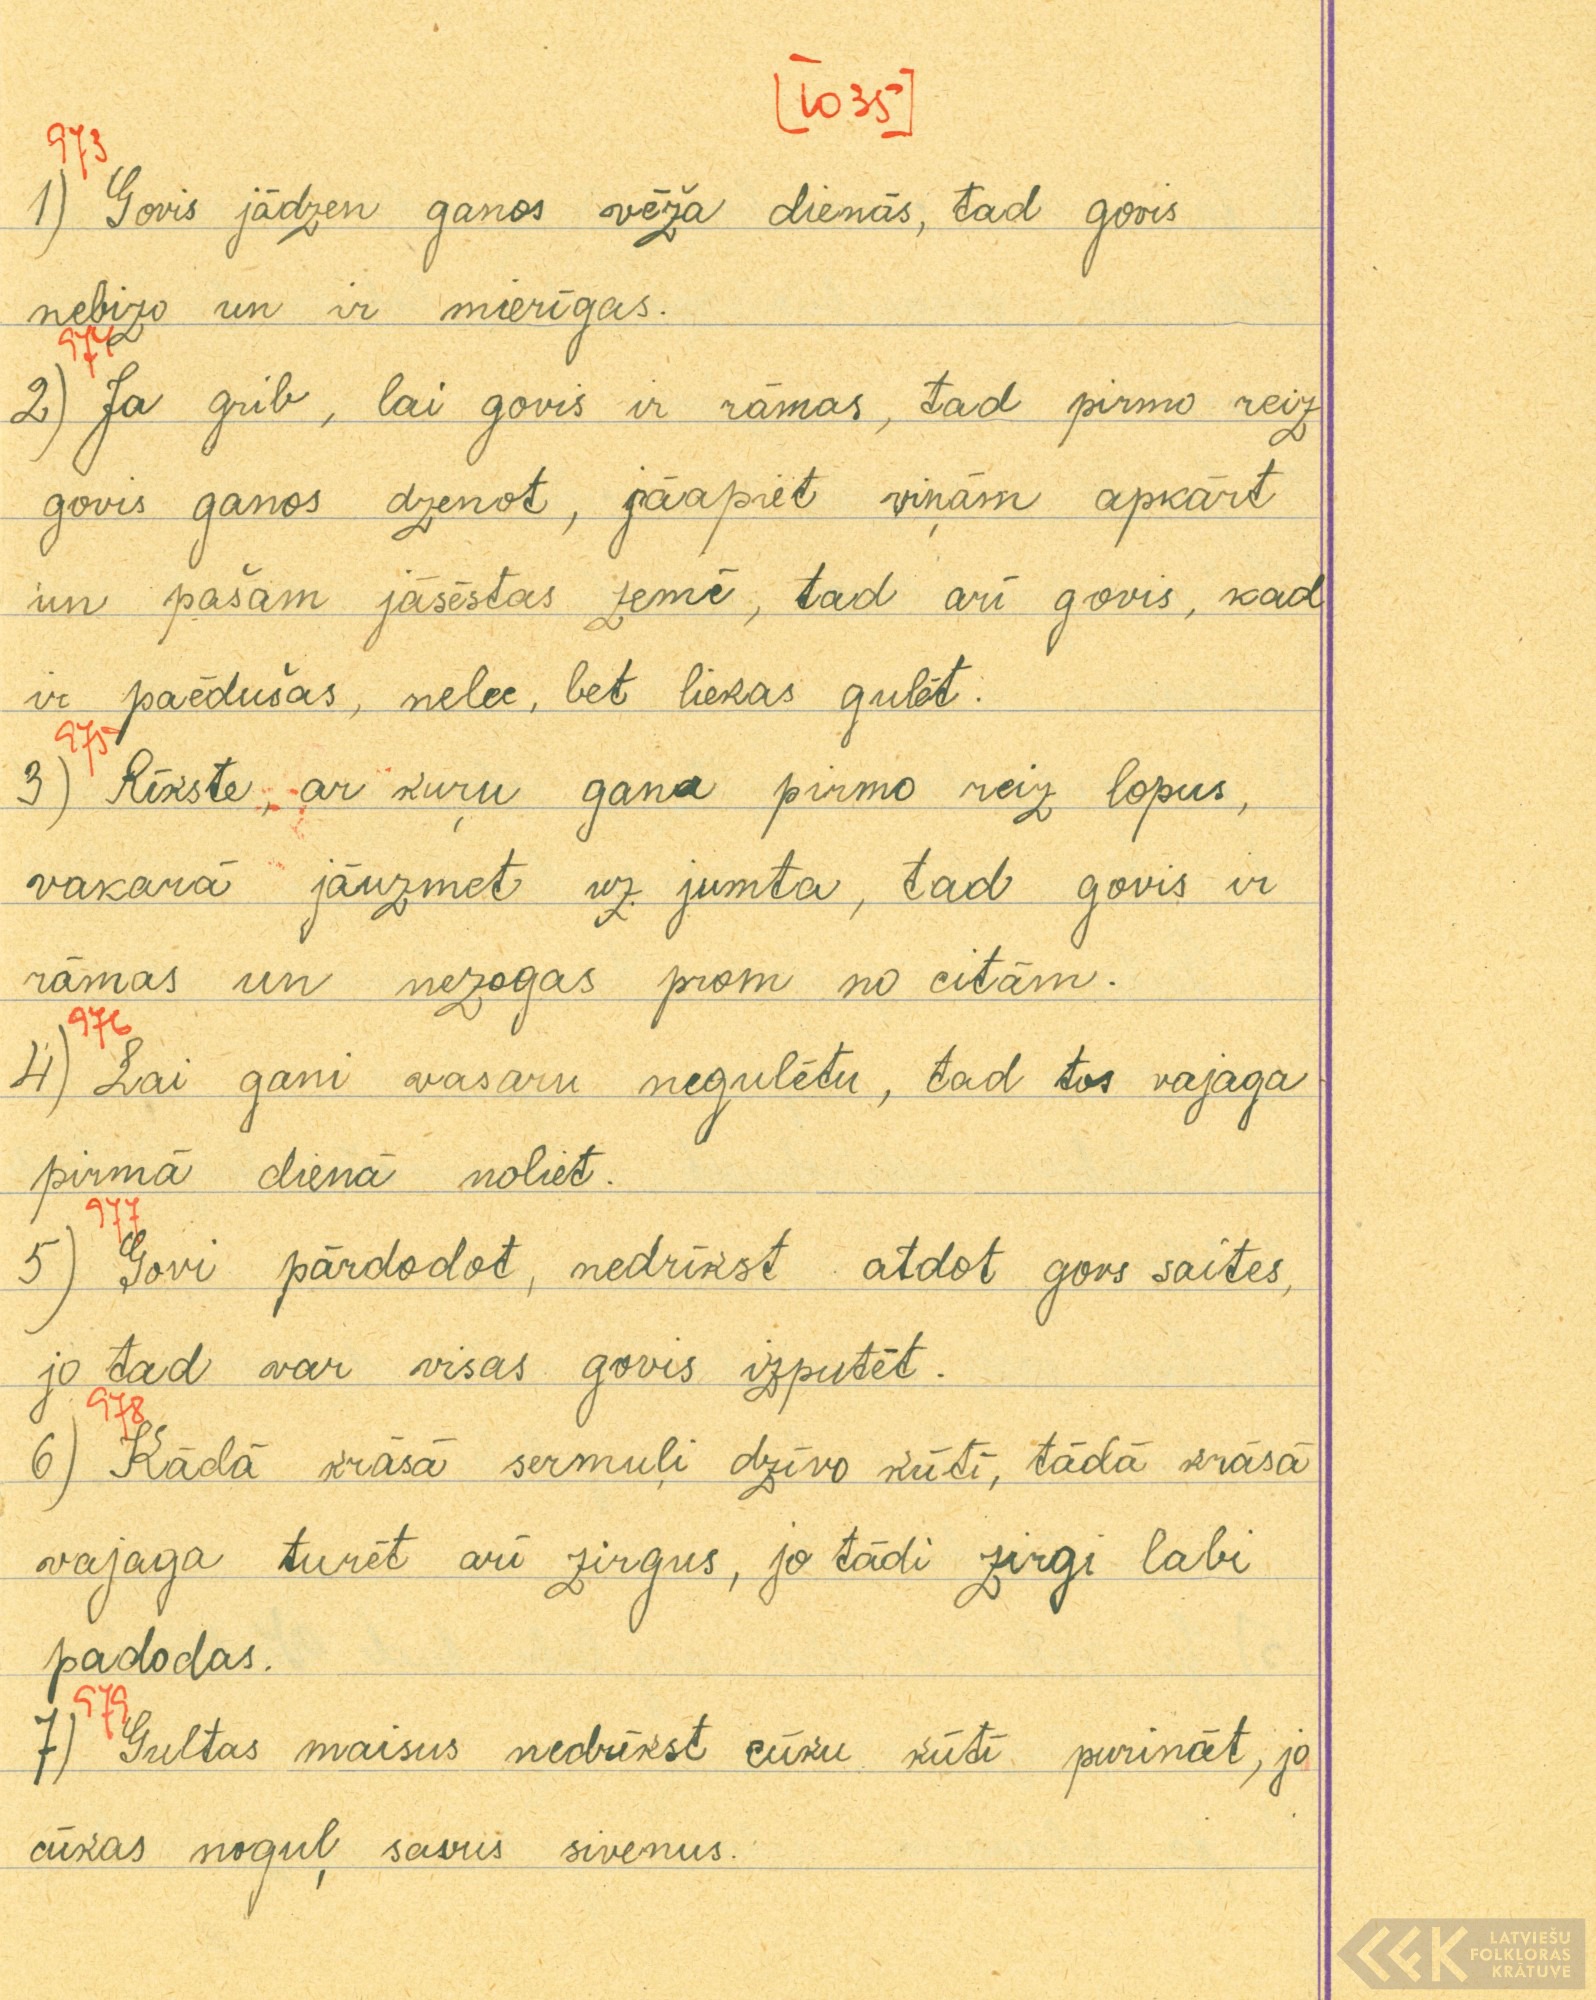 [1035]
973
1) Govis jādzen ganos vēža dienās, tad govis
nebizo un ir mierīgas.
974
2) Ja grib, lai govis ir rāmas, tad pirmo reiz
govis ganos dzenot, jāapiet viņām apkārt
un pašam jāsēstas zemē, tad arī govis, kad
ir paēdušas, nelec, bet liekas gulēt.
975
3) Rīkste, ar kuŗu gana pirmo reiz lopus,
vakarā jāuzmet uz jumta, tad govis ir
rāmas un nezogas prom no citām.
976
4) Lai gani vasaru negulētu, tad tos vajaga
pirmā dienā noliet.
977
5) Govi pārdodot, nedrīkst atdot govs saites,
jo tad var visas govis izputēt.
978
6) Kādā krāsā sermuļi dzīvo kūtī, tādā krāsā
vajaga turēt arī zirgus, jo tādi zirgi labi
padodas.
979
7) Gultas maisus nedrīkst cūku kūtī purināt, jo
cūkas noguļ savus sivenus.
LATVIEŠU
FOLKLORAS
KRĀTUVE